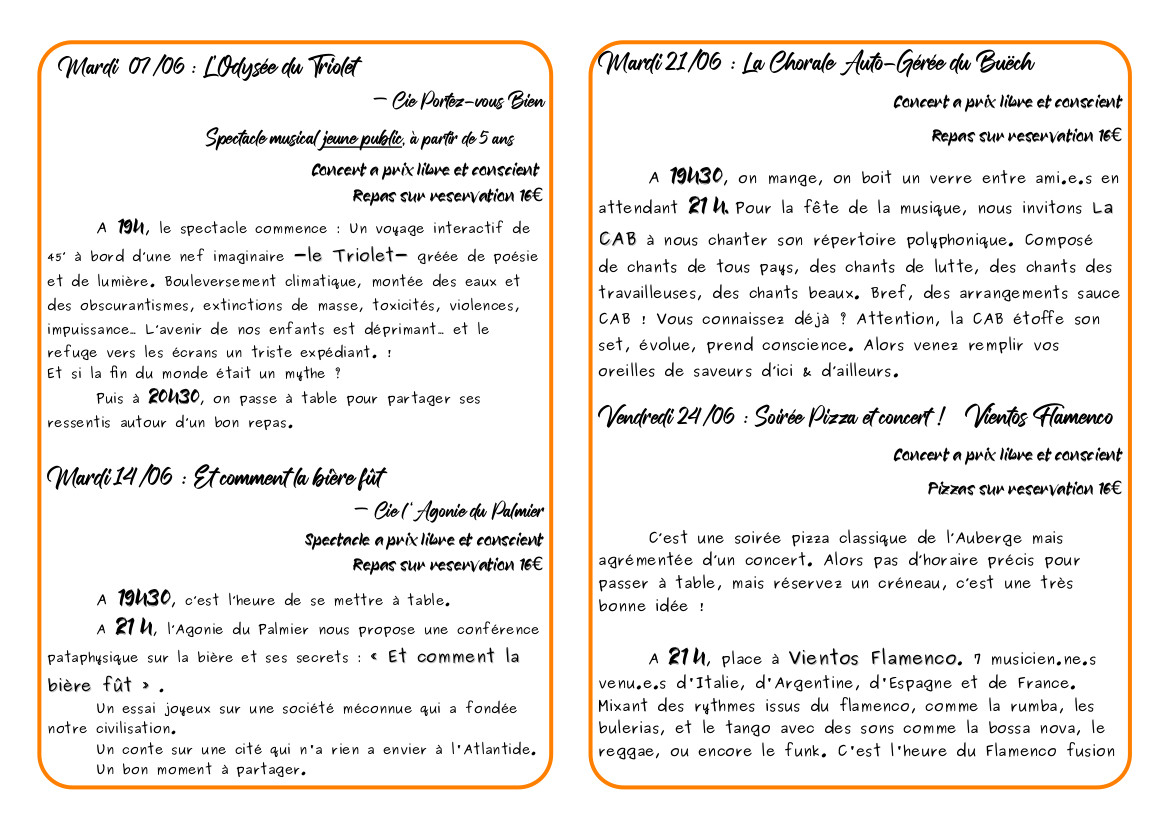 Mardi 07/06 : L'Odysée du Triolet
– Cie Portez-vous Bien
Spectacle musical jeune public, à partir de 5 ans
Concert a prix libre et conscient
Repas sur reservation 16€
A 19H, le spectacle commence : Un voyage interactif de
45' à bord d'une nef imaginaire –le Triolet– gréée de poésie
et de lumière. Bouleversement climatique, montée des eaux et
des obscurantismes, extinctions de masse, toxicités, violences,
impuissance… L'avenir de nos enfants est déprimant… et le
refuge vers les écrans un triste expédiant. !
Et si la fin du monde était un mythe ?
Puis à 20H30, on passe à table pour partager ses
ressentis autour d'un bon repas.
Mardi 14/06 : Et comment la bière fût
– Cie l'Agonie du Palmier
Spectacle a prix libre et conscient
Repas sur reservation 16€
A 19H30, c'est l'heure de se mettre à table.
A 21H, l'Agonie du Palmier nous propose une conférence
pataphysique sur la bière et ses secrets : « Et comment la
bière fût » .
Un essai joyeux sur une société méconnue qui a fondée
notre civilisation.
Un conte sur une cité qui n'a rien a envier à l'Atlantide.
Un bon moment à partager.
Mardi 21/06 : La Chorale Auto-Gérée du Buëch
Concert a prix libre et conscient
Repas sur reservation 16€
A 19H30, on mange, on boit un verre entre ami.e.s en
attendant 21H. Pour la fête de la musique, nous invitons La
CAB à nous chanter son répertoire polyphonique. Composé
de chants de tous pays, des chants de lutte, des chants des
travailleuses, des chants beaux. Bref, des arrangements sauce
CAB ! Vous connaissez déjà ? Attention, la CAB étoffe son
set, évolue, prend conscience. Alors venez remplir vos
oreilles de saveurs d'ici & d'ailleurs.
Vendredi 24/06 : Soirée Pizza et concert ! Vientos Flamenco
Concert a prix libre et conscient
Pizzas sur reservation 16€
C'est une soirée pizza classique de l'Auberge mais
agrémentée d'un concert. Alors pas d'horaire précis pour
passer à table, mais réservez un créneau, c'est une très
bonne idée !
A 21H, place à Vientos Flamenco. 7 musicien.ne.s
venu.e.s d'Italie, d'Argentine, d'Espagne et de France.
Mixant des rythmes issus du flamenco, comme la rumba, les
bulerias, et le tango avec des sons comme la bossa nova, le
reggae, ou encore le funk. C'est l'heure du Flamenco fusion